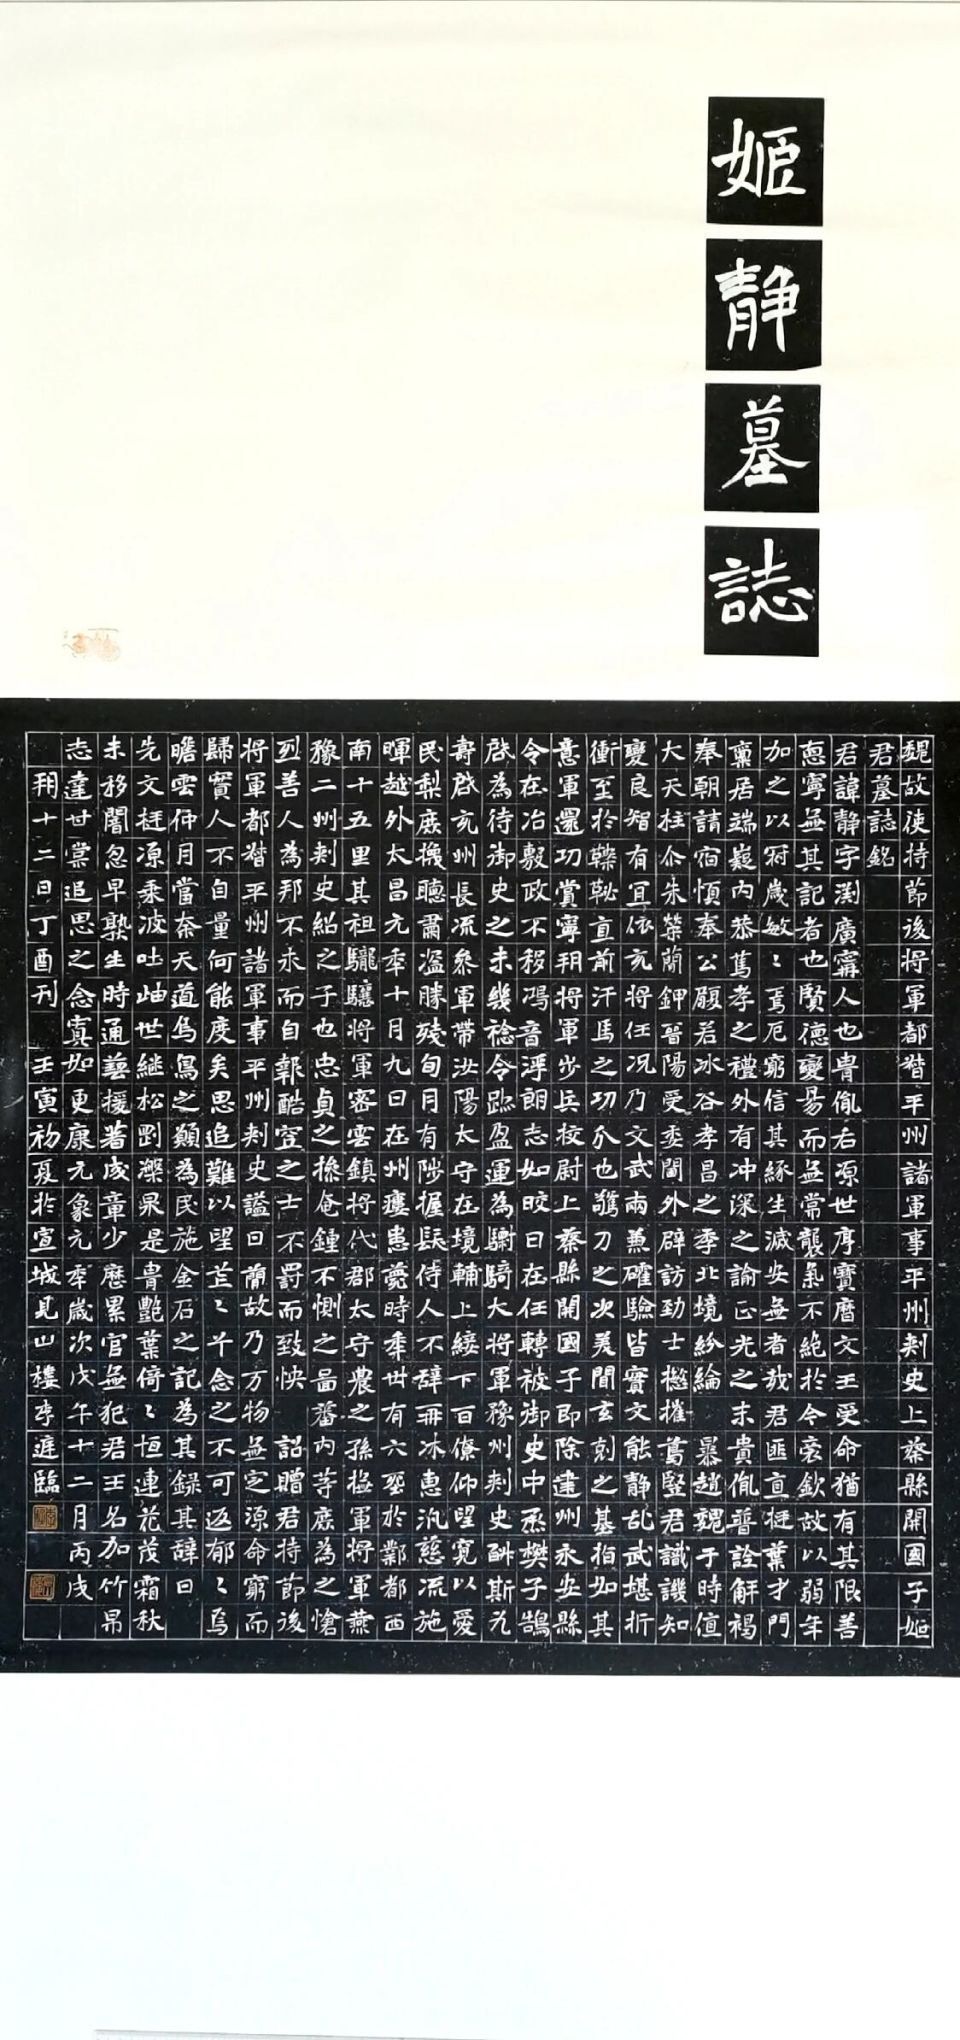 姬靜墓誌
魏故使持節後将軍都督平州諸軍事平州刺史上蔡縣開國子姬
君墓誌銘
君諱靜字渊廣甯人也胄胤右源世序寶曆文王受命猶有其限善
惡寧無其記者也賢德變易而無常襲氣不絶於令哀欽故以弱年
加之以冠歲敏〻焉厄窮信其緣生滅安無者哉君匪直挺葉才門
禀居端嶷内恭篤孝之禮外有冲深之諭正光之末貴胤晉詮解褐
奉朝請宿慎奉公履若冰谷孝昌之季北境紛綸 暴趙魏于時值
大天柱尒朱榮蘭鉀晉陽受委閫外辟訪勁士㩲摧篤堅君識譏知
變良智有冝依充将任况乃文武兩兼確驗皆實文能静乱武堪折
衝至於鞿䩛直前汗馬之功尒也驚刀之次美聞玄刻之基指如其
意軍還功賞寧朔将軍步兵校尉上蔡縣開國子即除建州永安縣
令在治敷政不移鴻音浮朗志如晈日在任轉被御史中丞樊子鵠
啓為待御史之未幾稔令跡盈運為驃騎大将軍豫州刾史酬斯允
壽啟充州長流叅軍帶汝陽太守在境輔上綏下百僚仰望寛以愛
民梨庶機聽肅溢勝殘旬月有陟握髪侍人不辭冊冰惠汎慈流施
暉越外太昌元秊十月九日在州癭患薨時秊丗有六塟於鄴都西
南十五里其祖驪驤将軍密雲鎮将代郡太守農之孫極軍将軍燕
豫二州刺史紹之子也忠貞之操奄鍾不惻之啚藩内等庶為之愴
烈善人為邦不永而自報酷寃之士不罰而致怏 詔贈君持節後
将軍都督平州諸軍事平州刾史謚曰蕳故乃万物無定源命窮而
歸實人不自量何能度矣思追難以望茫〻千念之不可返郁〻烏
瞻雲仲月當奈天道烏鳥之顛為民施金石之記為其録其辞曰
先文挺源乘波吐岫世継松剛濼果是胄艷葉停〻恒連花茂霜秋
未移闇忽早槷生時通藝援著成章少曆累官無犯君王名加竹帛
志達丗嘗追思之念寘如更康元象元秊歳次戊午十二月丙戌
朔十二日丁酉刋 壬寅初夏於宣城見山樓李進臨